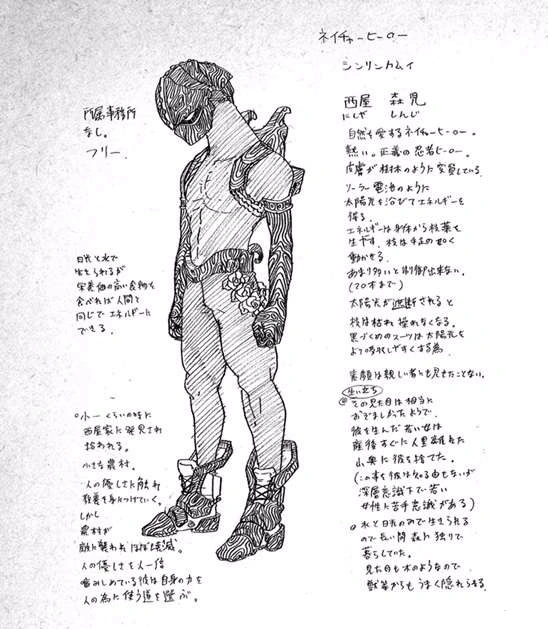 ネイチャーヒーロー
シンリンカムイ
西屋 森児
にしや しんじ
自然を愛するネイチャーヒーロー。
熱い。正義の忍者ヒーロー。
皮膚が樹林のように変質している
ソーラー電池のように
太陽光を浴びてエネルギーを
得る。
エネルギーは身体から枝葉を
生やす。枝は手足の如く
動かせる。
あまり多いと制御出来ない。
(20本まで)
太陽光が遮断されると
枝は枯れ操れなくなる。
黒づくめのスーツは太陽光を
より吸収しやすくする為
素顔は親しい者にも見せたことない。
生い立ち
その見た目は相当に
おぞましかったようで、
彼を生んだ若い女は
産後すぐに人里離れた
山奥に彼を捨てた。
(この事を彼は知る由もないが
深層意識下で若い
女性に苦手意識がある)
水と日光のみで生きられる
ので長い間森に独りで
暮らしていた。
見た目も木のようなので
獣等からもうまく隠れられる
所属事務所
なし。
フリー
日光と水で
生きられるが
栄養価の高い食物を
食べれば人間と
同じでエネルギーに
できる。
小一くらいの時に
西屋家に発見され
拾われる。
小さな農村。
人の優しさに触れ
教養を身につけていく。
しかし
農村が
敵に襲われほぼ壊滅。
人の優しさを人一倍
噛みしめている彼は自身の力を
人の為に使う道を選ぶ。